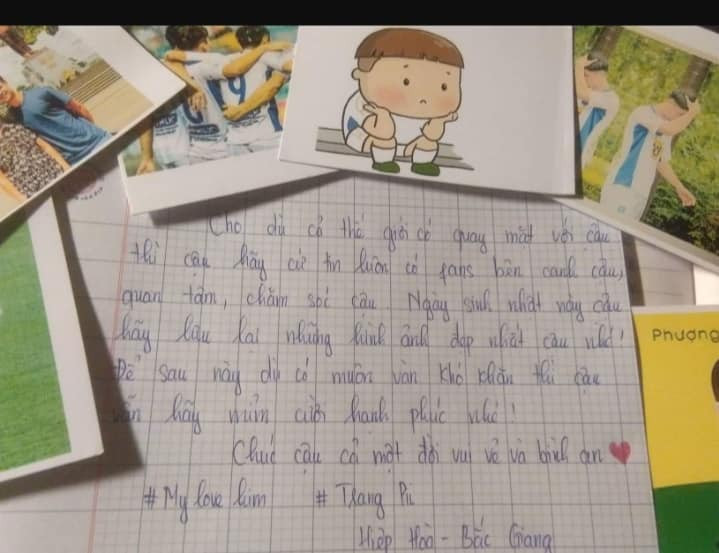 Cho dù cả thế giới có quay mặt với cậu
thì cậu hãy cứ tin luôn có fans bên cạnh cậu,
quan tâm, chăm sóc cậu. Ngày sinh nhật này cậu
hãy lưu lại những hình ảnh đẹp nhất cậu nhé!
Để sau này dù có muôn vàn khó khăn thì cậu
vẫn hãy mỉm cười hạnh phúc nhé!
Chúc cậu cả một đời vui vẻ và bình an ❤
# My love him # Trang Pii
Hiệp Hoà - Bắc Giang
Phương
9